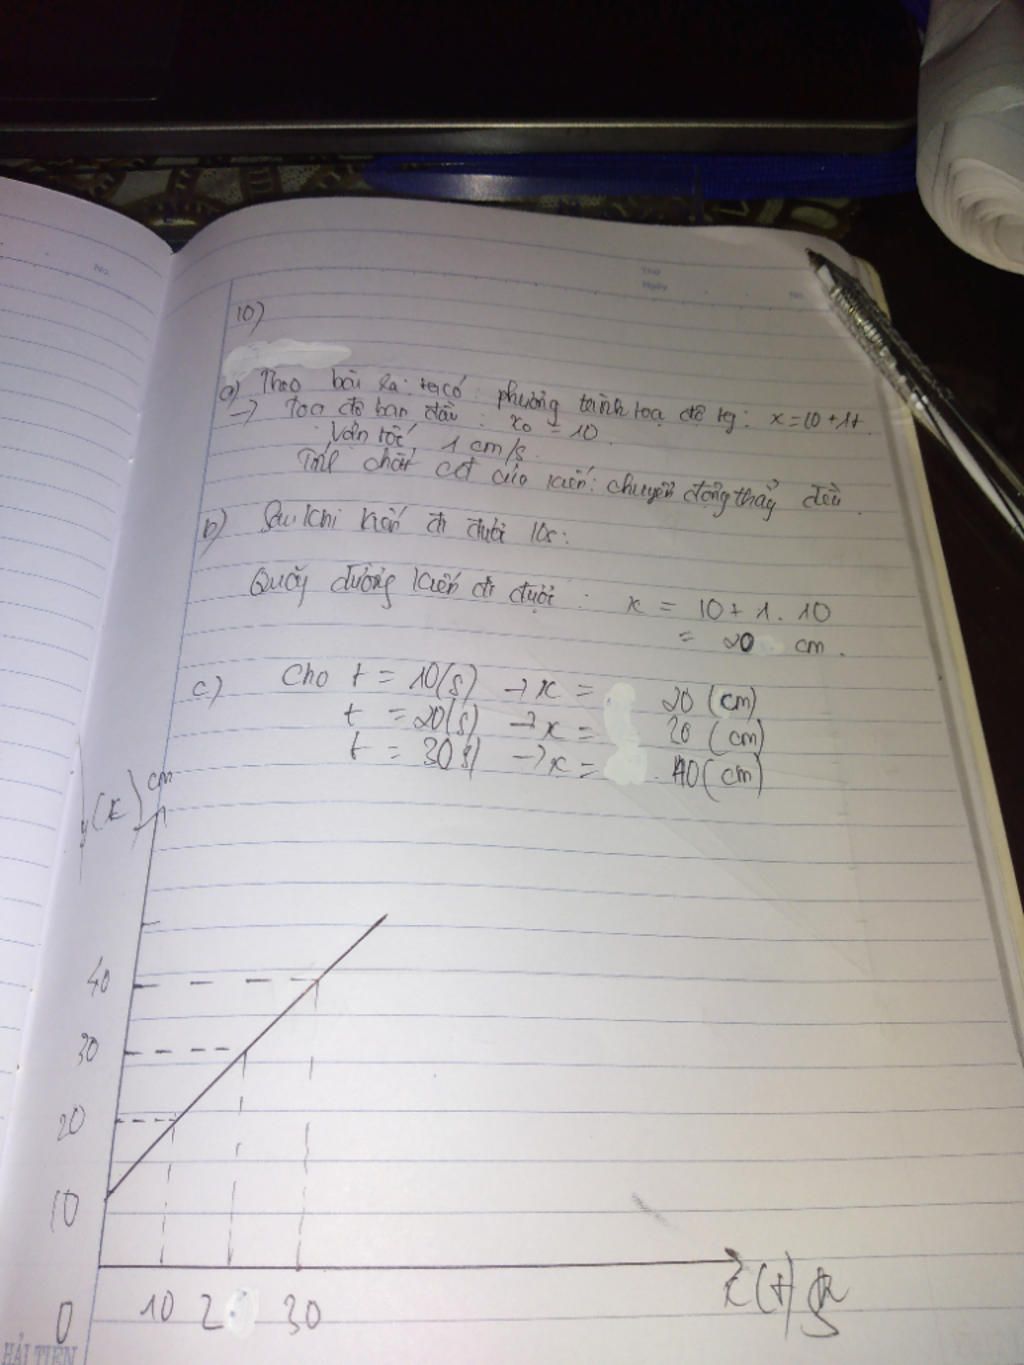 No.
Thứ
Ngày
No.
10)
a) Theo bài ra: ta có: phương trình toạ độ tq: x = 10 + 1t.
→ Toạ độ ban đầu: x₀ = 10.
Vận tốc 1 cm/s.
Tính chất cđ của kiến: chuyển động thẳng đều.
b) Sau khi kiến đi được 10s:
Quãng đường kiến đi được: x = 10 + 1. 10
= 20 cm.
c) Cho t = 10(s) → x = 20 (cm)
t = 20(s) → x = 20 (cm)
t = 30(s) → x = 40 (cm)
(x) cm
40
30
20
10
0
10 2 30
(t)
HẢI TIẾN